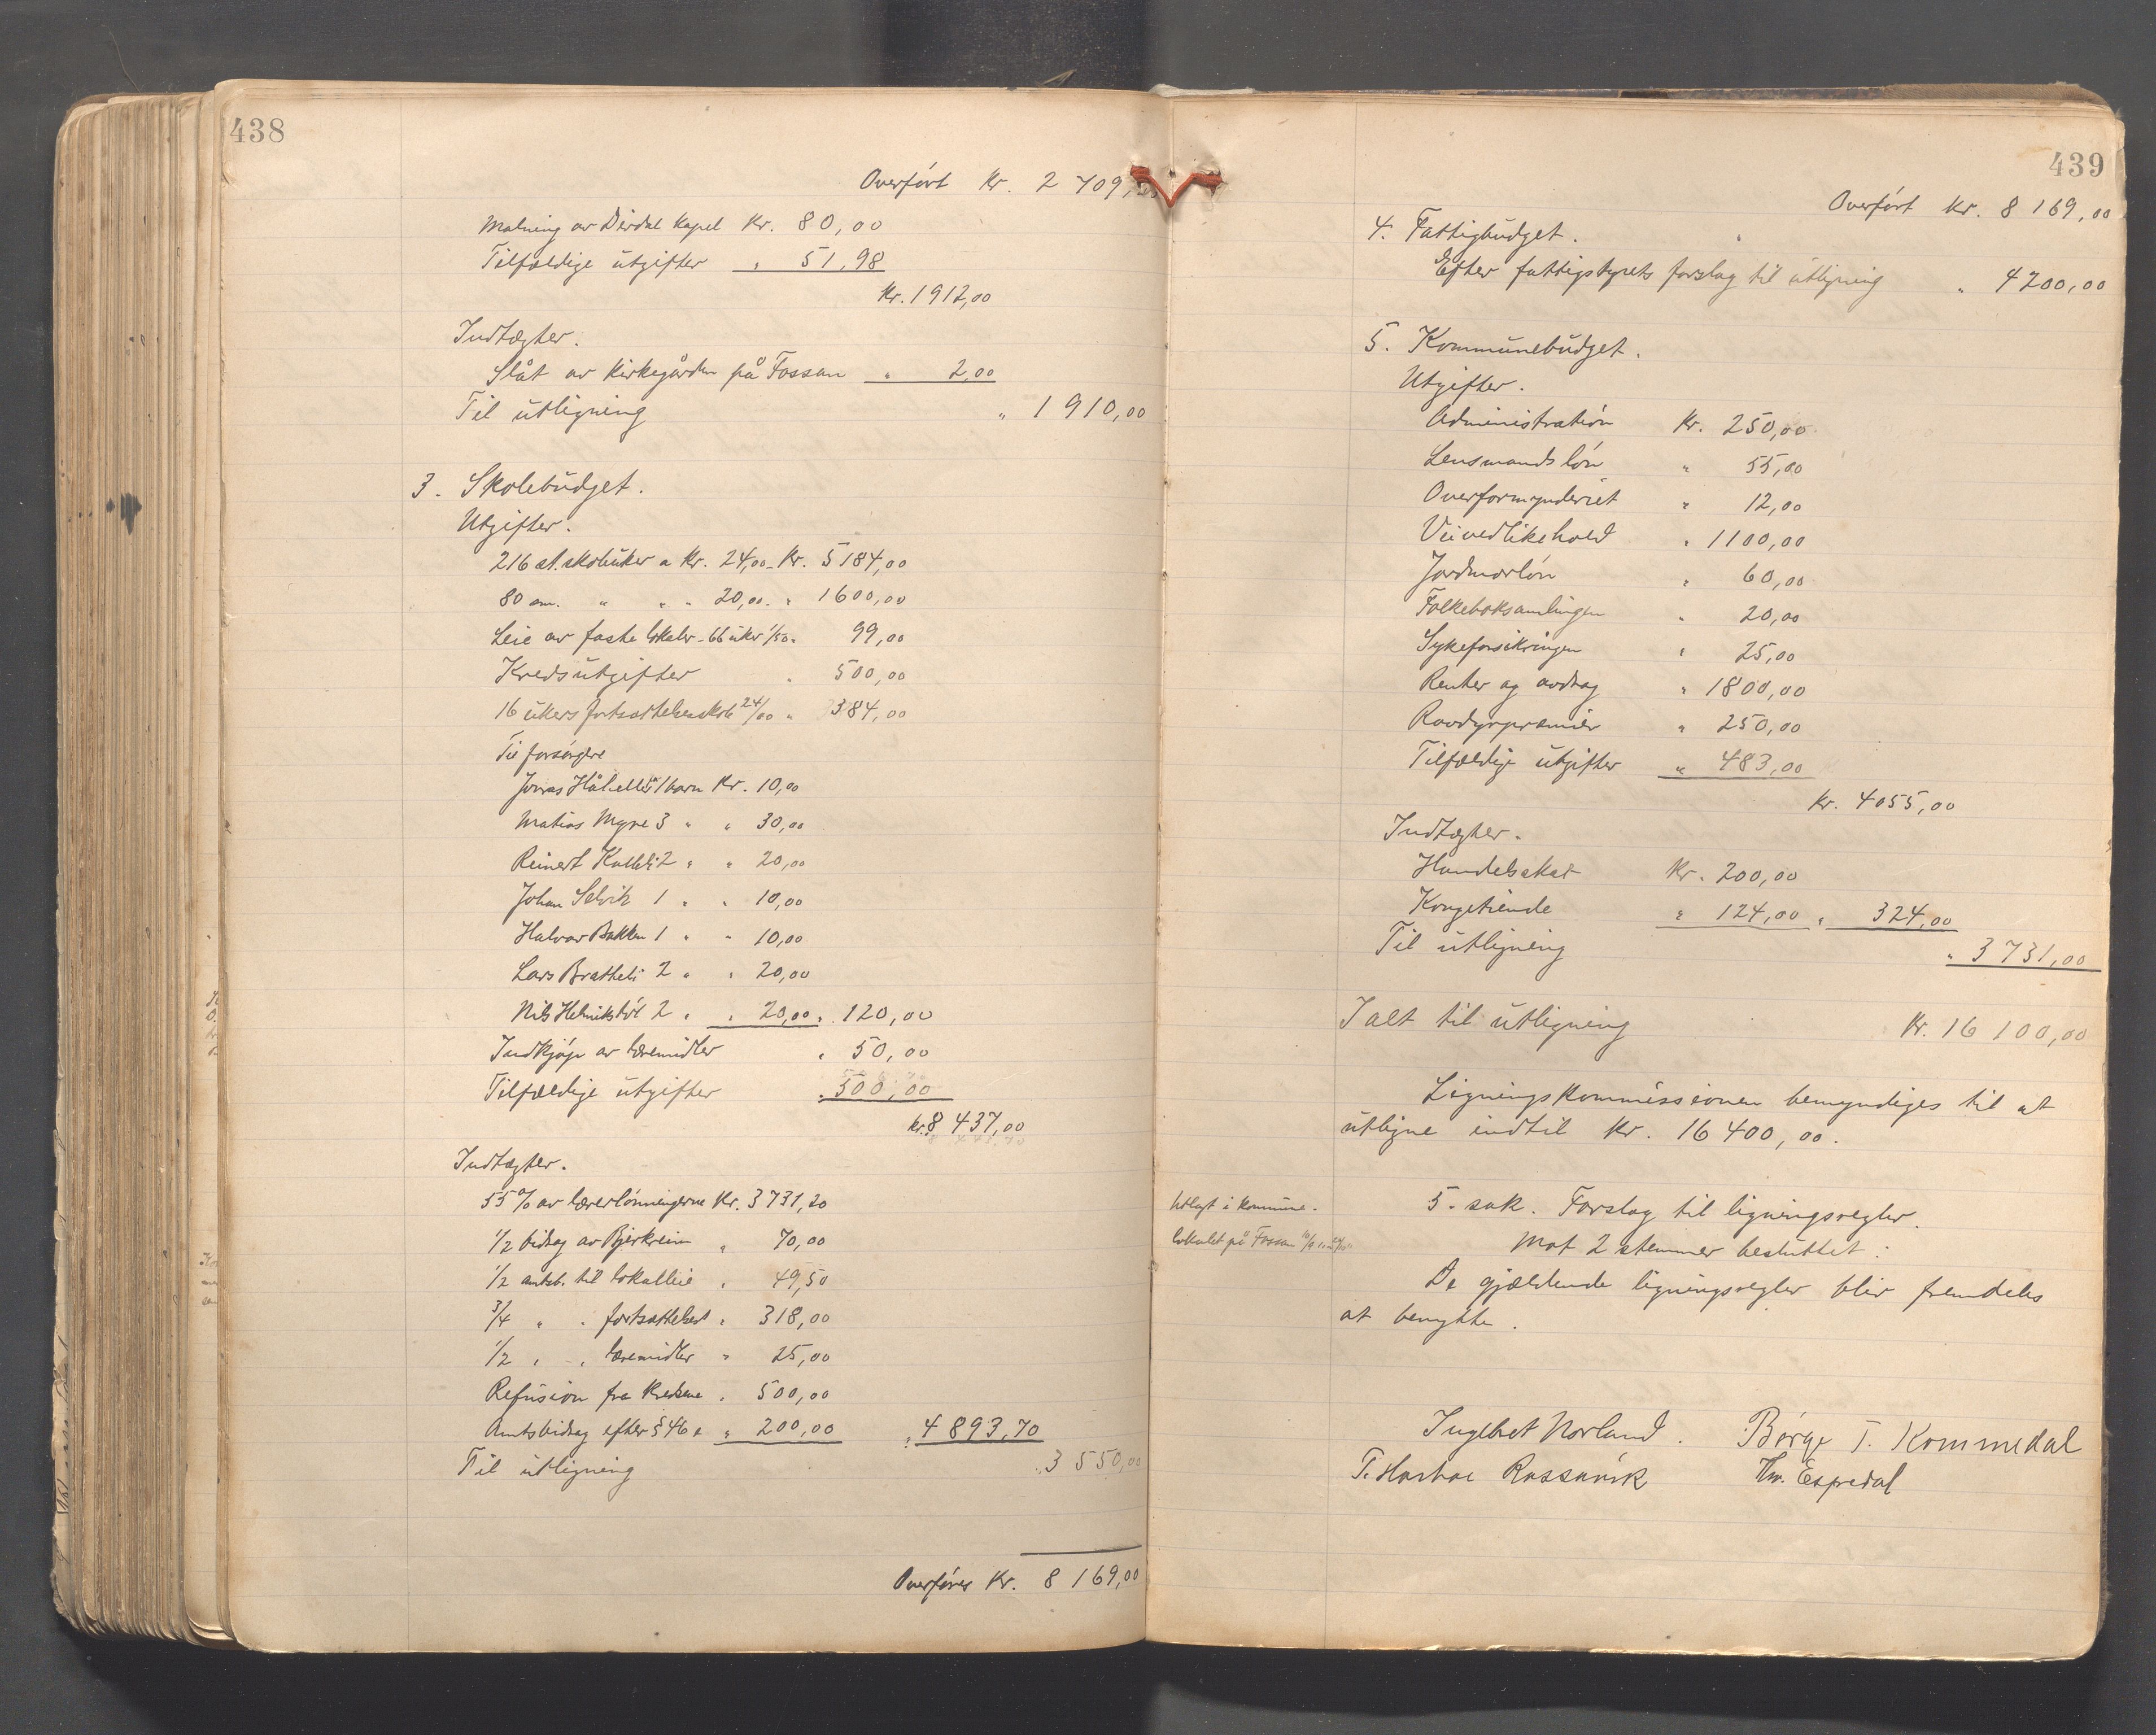 438
Overført Kr. 2 709,
Malning av Dirdal kapel Kr. 80,00
Tilfældige utgifter " 51,98
Kr. 1912,00
Indtægter.
Slåt av kirkegården på Fossan " 2,00
Til utligning " 1 910,00
3. Skolebudget.
Utgifter.
216 st. skoleuker a Kr. 24,00 - Kr. 5 184,00
80 om. " " " 20,00 - " 1600,00
Leie av faste lokaler - 66 uker 1/50 " 99,00
Kredsutgifter " 500,00
16 ukers fortsættelsesskole 24/00 " 384,00
Til forsørgere
Jonas Hålelli 1 barn Kr. 10,00
Matias Myre 3 " " 30,00
Reinert 2 " " 20,00
Johan Selvik 1 " " 10,00
Halvor Bakken 1 " " 10,00
Lars Bratheli 2 " " 20,00
Nils Helmikstøl 2 " " 20,00 " 120,00
Indkjøp av læremidler " 50,00
Tilfældige utgifter " 500,00
Kr. 8 437,00
Indtægter.
55 % av lærerlønningerne Kr. 3731,20
1/2 bidrag av Bjerkreim " 70,00
1/2 amtsb. til lokalleie " 49,50
3/4 " " fortsættelsess. " 318,00
1/2 " " læremidler " 25,00
Refusion fra kredsene " 500,00
Amtsbidrag efter § 46 " 200,00 " 4 893,70
Til utligning " 3 550,00
Overføres Kr. 8 169,00
439
Overført Kr. 8 169,00
4. Fattigbudget.
Efter fattigstyrets forslag til utligning " 4200,00
5. Kommunebudget.
Utgifter.
Administration Kr. 250,00
Lensmandsløn " 55,00
Overformynderiet " 12,00
Veivedlikehold " 1100,00
Jordmorløn " 60,00
Folkeboksamlingen " 20,00
Sykeforsikringen " 25,00
Renter og avdrag " 1800,00
Rovdyrpræmier " 250,00
Tilfældige utgifter " 483,00
Kr. 4055,00
Indtægter.
Handelsskat Kr. 200,00
Kongetiende " 124,00 " 324,00
Til utligning " 3731,00
I alt til utligning Kr. 16 100,00
Ligningskommissionen bemyndiges til at
utligne indtil Kr. 16 400,00.
Utlagt i kommune-
lokalet på Fossan
5. sak. Forslag til ligningsregler.
Mot 2 stemmer besluttet:
De gjældende ligningsregler blir fremdeles
at benytte.
Ingebret Norland. Børge T. Kommedal
T. Rossavik Espedal